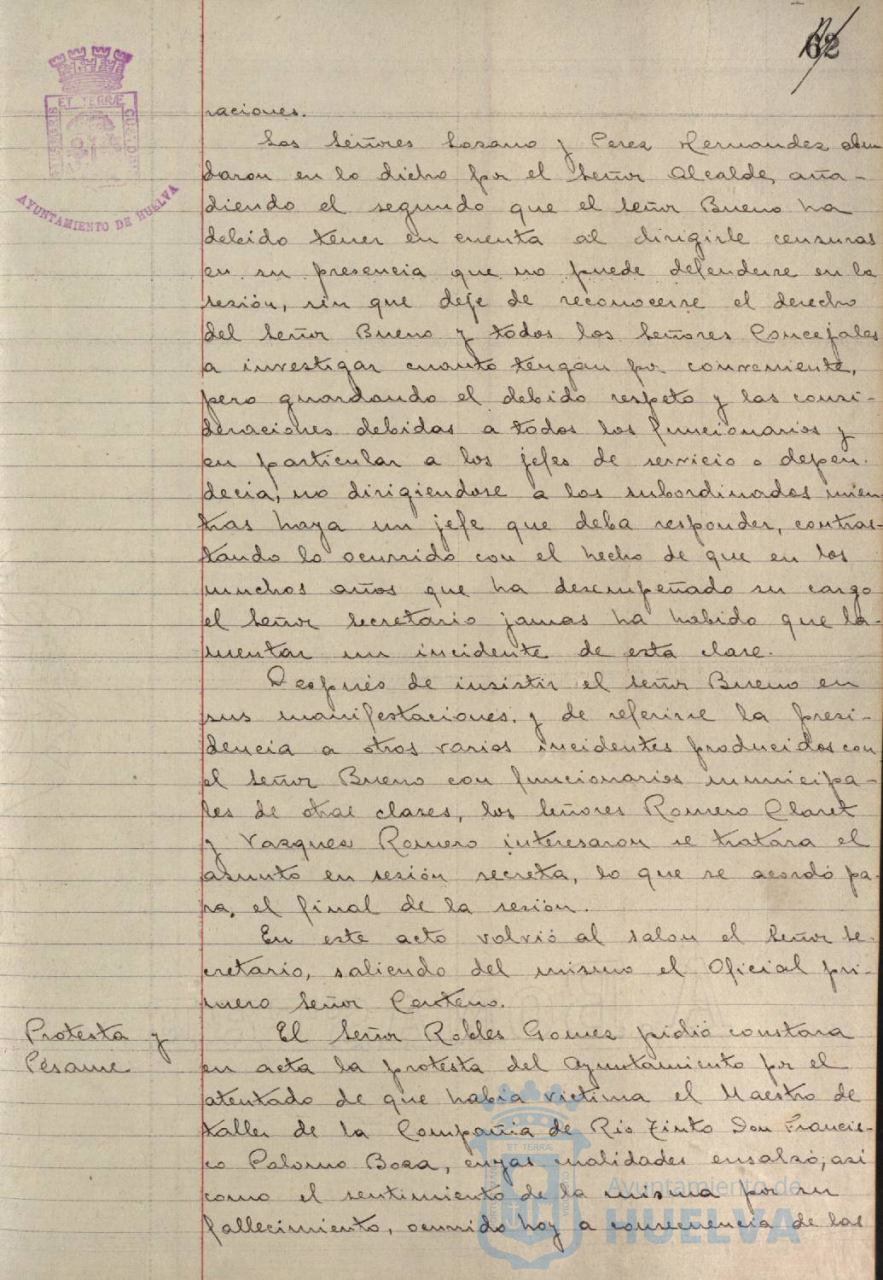 62
ET TERRÆ
AYUNTAMIENTO DE HUELVA
raciones.
Los Señores Lozano y Perez Hernandez abun
daron en lo dicho por el Señor Alcalde, aña-
diendo el segundo que el Señor Bueno ha
debido tener en cuenta al dirigirle censuras
en su presencia que no puede defenderse en la
sesión, sin que deje de reconocerse el derecho
del Señor Bueno y todos los Señores Concejales
a investigar cuanto tengan por conveniente,
pero guardando el debido respeto y las consi-
deraciones debidas a todos los funcionarios y
en particular a los jefes de servicio o depen-
decia, no dirigiendose a los subordinados mien
tras haya un jefe que deba responder, contras-
tando lo ocurrido con el hecho de que en los
muchos años que ha desempeñado su cargo
el Señor Secretario jamas ha habido que la-
mentar un incidente de esta clase.
Después de insistir el Señor Bueno en
sus manifestaciones, y de referirse la presi-
dencia a otros varios incidentes producidos con
el Señor Bueno con funcionarios municipa-
les de otrae clases, los Señores Romero Claret
y Vazquez Romero interesaron se tratara el
asunto en sesión secreta, lo que se acordó pa-
ra, el final de la sesión.
En este acto volvió al salon el Señor Se-
cretario, saliendo del mismo el Oficial pri-
mero Señor Centeno.
Protesta y
Pésame
El Señor Robles Gomez pidió constara
en acta la protesta del Ayuntamiento por el
atentado de que habia victima el Maestro de
taller de la Compañia de Rio Tinto Don Francis-
co Palomo Boza, cuyas cualidades ensalzó, asi
como el sentimiento de la misma por su
fallecimiento, ocurrido hoy a consecuencia de las
ET TERRÆ
Ayuntamiento de
HUELVA